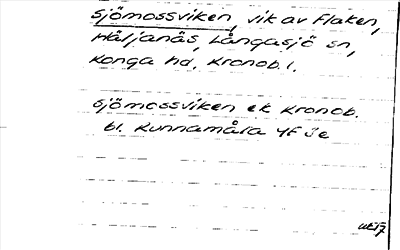 Sjömossviken, vik av Flaken,
Häljanäs, Långasjö sn,
Konga hd, Kronob. l.
Sjömossviken ek Kronob.
bl. Kunnamåla 4F